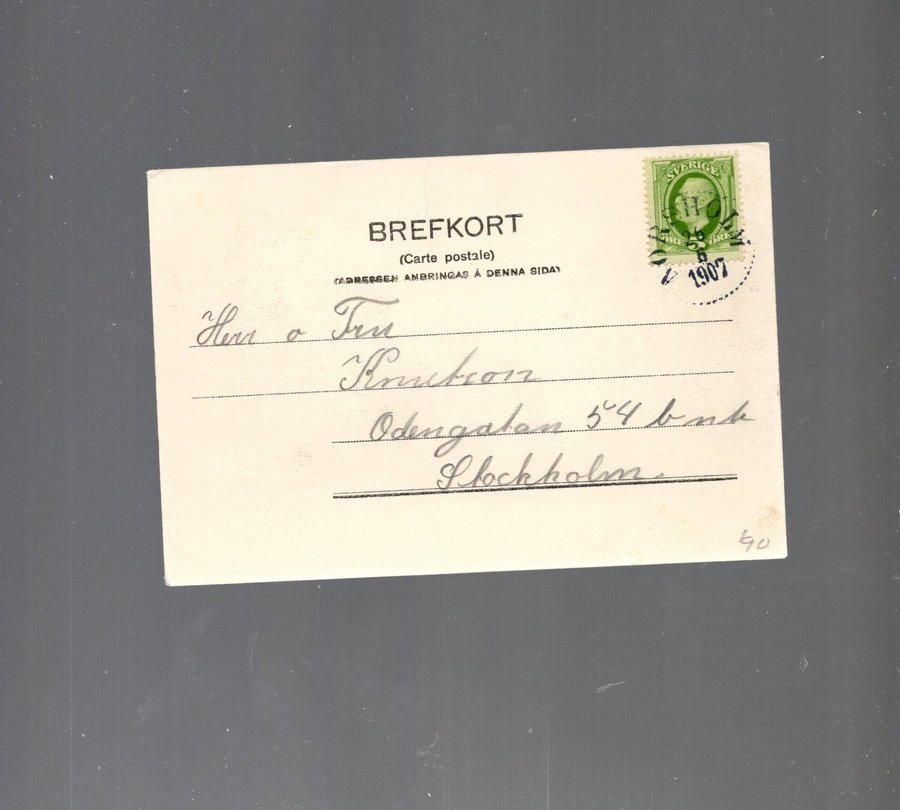 BREFKORT
(Carte postale)
(ADRESSEN ANBRINGAS Å DENNA SIDA)
SVERIGE
ÖRE ÖRE
NORSHOLM
26
6
1907
Herr o Fru
Knutson
Odengatan 54 b nb
Stockholm.
90